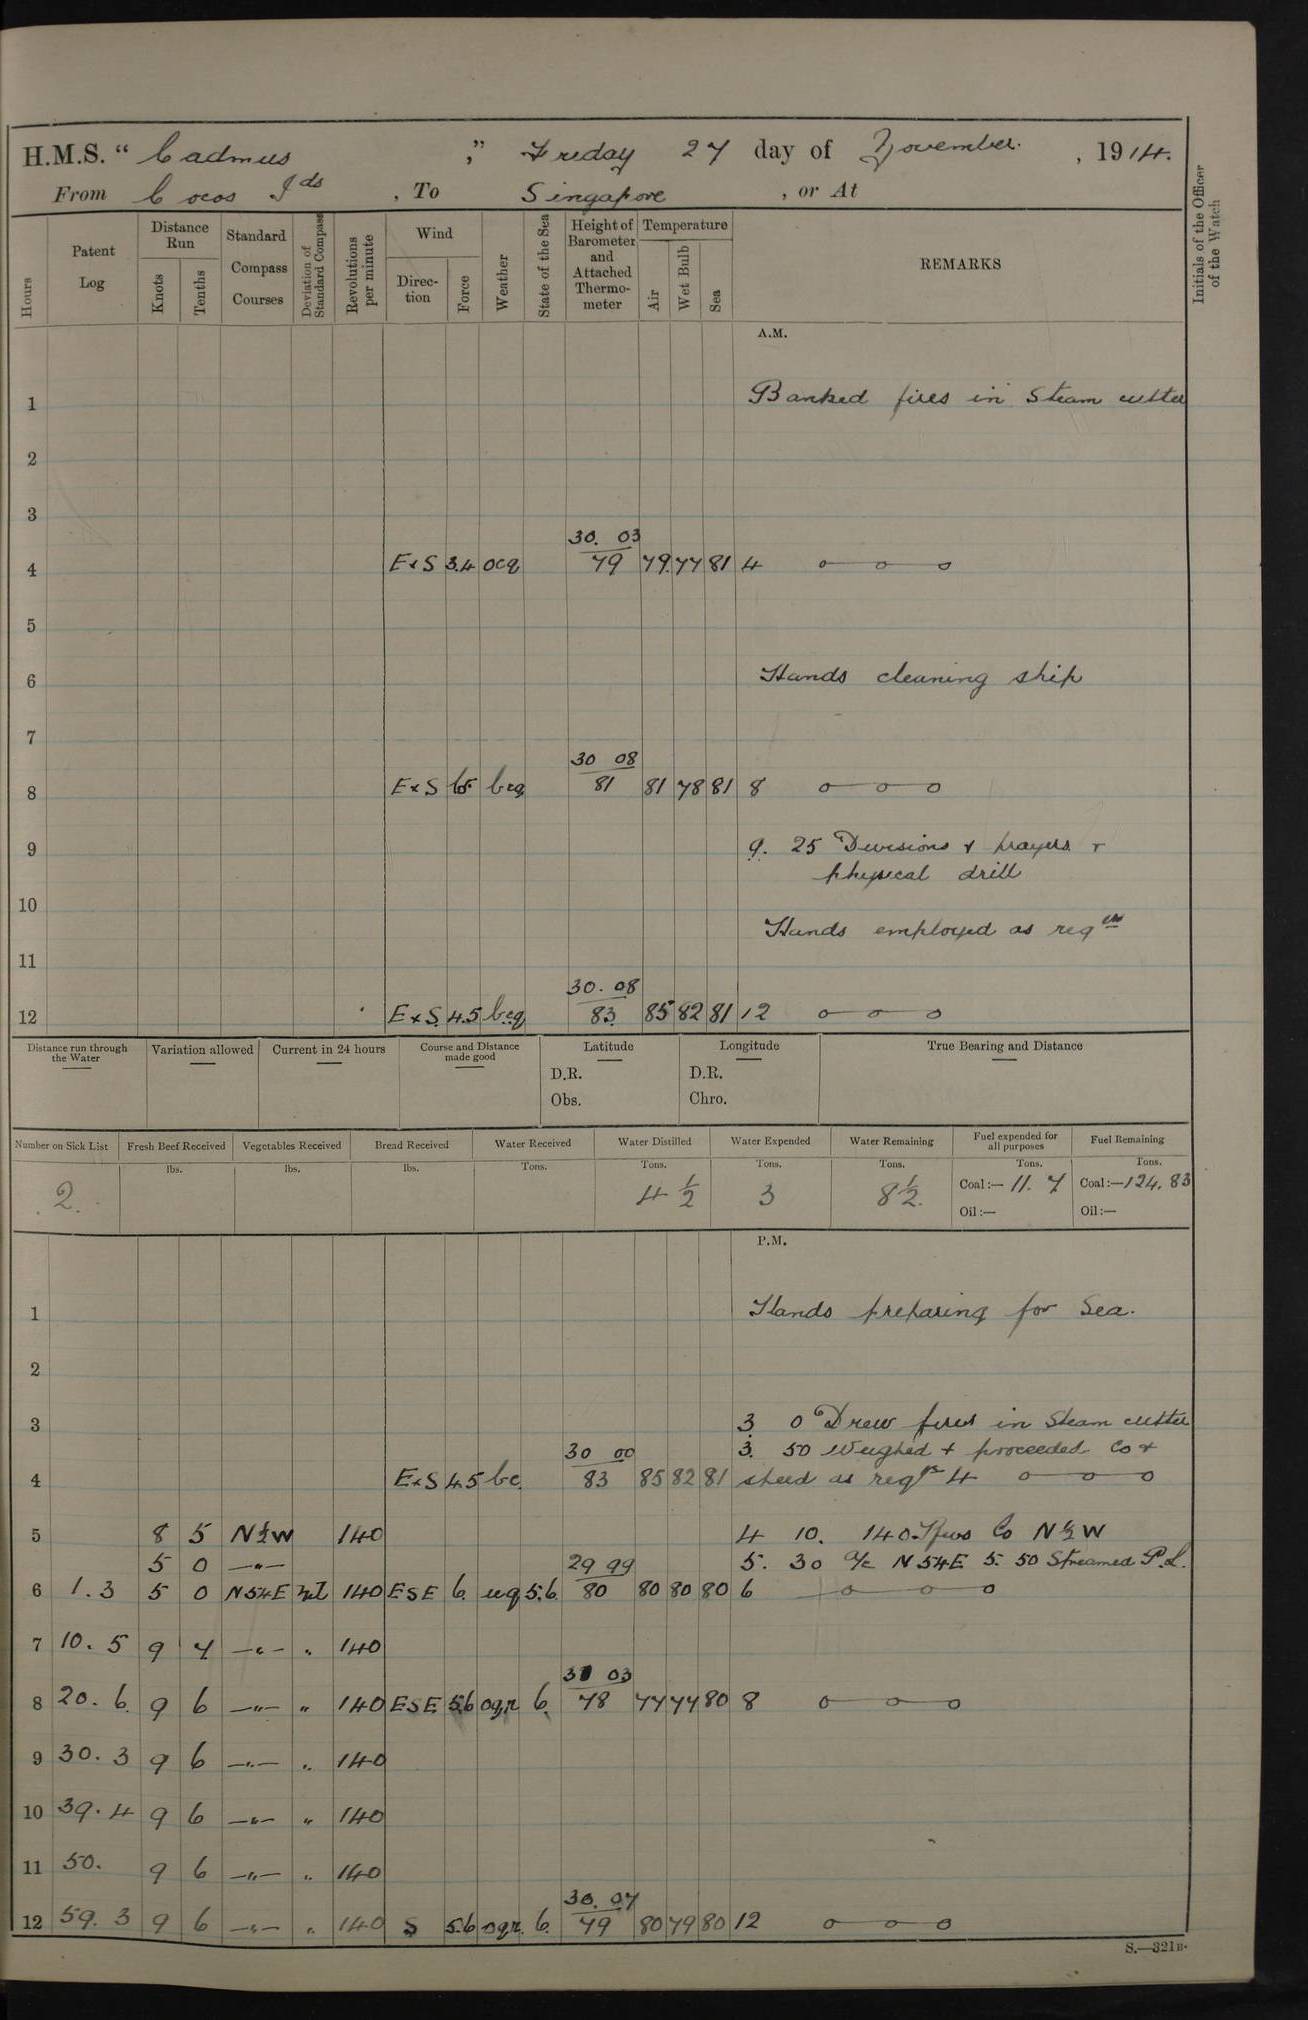 H.M.S. “ Cadmus ,” Friday 27 day of November. , 1914.
From Cocos Ids , To Singapore , or At
Initials of the Officer of the Watch
Hours
Patent Log
Distance Run
Knots
Tenths
Standard Compass Courses
Deviation of Standard Compass
Revolutions per minute
Wind
Direction
Force
Weather
State of the Sea
Height of Barometer and Attached Thermometer
Temperature
Air
Wet Bulb
Sea
REMARKS
A.M.
1 Banked fires in Steam cutter
2
3
30. 03
4 E x S 3.4 ocq 79 79. 77 81 4 o — o — o
5
6 Hands cleaning ship
7
30 08
8 E x S bcq 81 81 78 81 8 o — o — o
9 9. 25 Divisions + prayers +
physical drill
10 Hands employed as reqre
11
30. 08
12 E x S. 4.5 bcq 83. 85 82 81 12 o — o — o
Distance run through the Water
Variation allowed
Current in 24 hours
Course and Distance made good
Latitude
D.R.
Obs.
Longitude
D.R.
Chro.
True Bearing and Distance
Number on Sick List Fresh Beef Received Vegetables Received Bread Received Water Received Water Distilled Water Expended Water Remaining Fuel expended for all purposes Fuel Remaining
lbs. lbs. lbs. Tons. Tons. Tons. Tons. Tons. Tons.
2. 4 ½ 3 8 ½. Coal :— 11. 7 Coal :— 124. 83
Oil :— Oil :—
P.M.
1 Hands preparing for Sea.
2
3 3. 0 Drew fires in Steam cutter
30 00 3. 50 Weighed + proceeded Co +
4 E x S 4.5 bc. 83 85 82 81 speed as reqre 4 o — o — o
5 8 5 N ½ W 140 4 10. 140 Revs Co N ½ W
5 0 —"— 29 99 5. 30 a/c N 54 E 5. 50 Streamed P.L.
6 1. 3 5 0 N 54 E 140 ESE 6. 5.6. 80 80 80 80 6 o — o — o
7 10. 5 9 7 —"— " 140
30 03
8 20. 6. 9 6 —"— " 140 ESE 5.6 oqr 6. 78 77 77 80 8 o — o — o
9 30. 3 9 6 —"— " 140
10 39. 4 9 6 —"— " 140
11 50. 9 6 —"— " 140
30. 07
12 59. 3 9 6 —"— " 140 S 5.6 oqr. 6. 79 80 79 80 12 o — o — o
S.—321B.